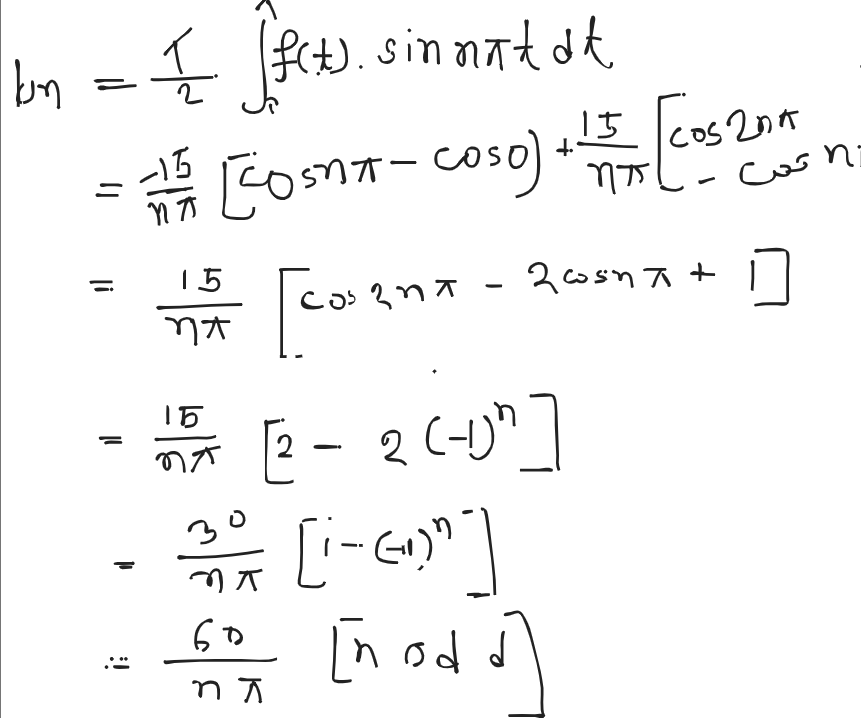 bn = 1/2 ∫ f(t). sin nπt dt
= -15/nπ [cosnπ - cos0] + 15/nπ [cos2nπ - cos n
= 15/nπ [cos2nπ - 2cosnπ + 1]
= 15/nπ [2 - 2(-1)^n]
= 30/nπ [1-(-1)^n]
= 60/nπ [n odd]